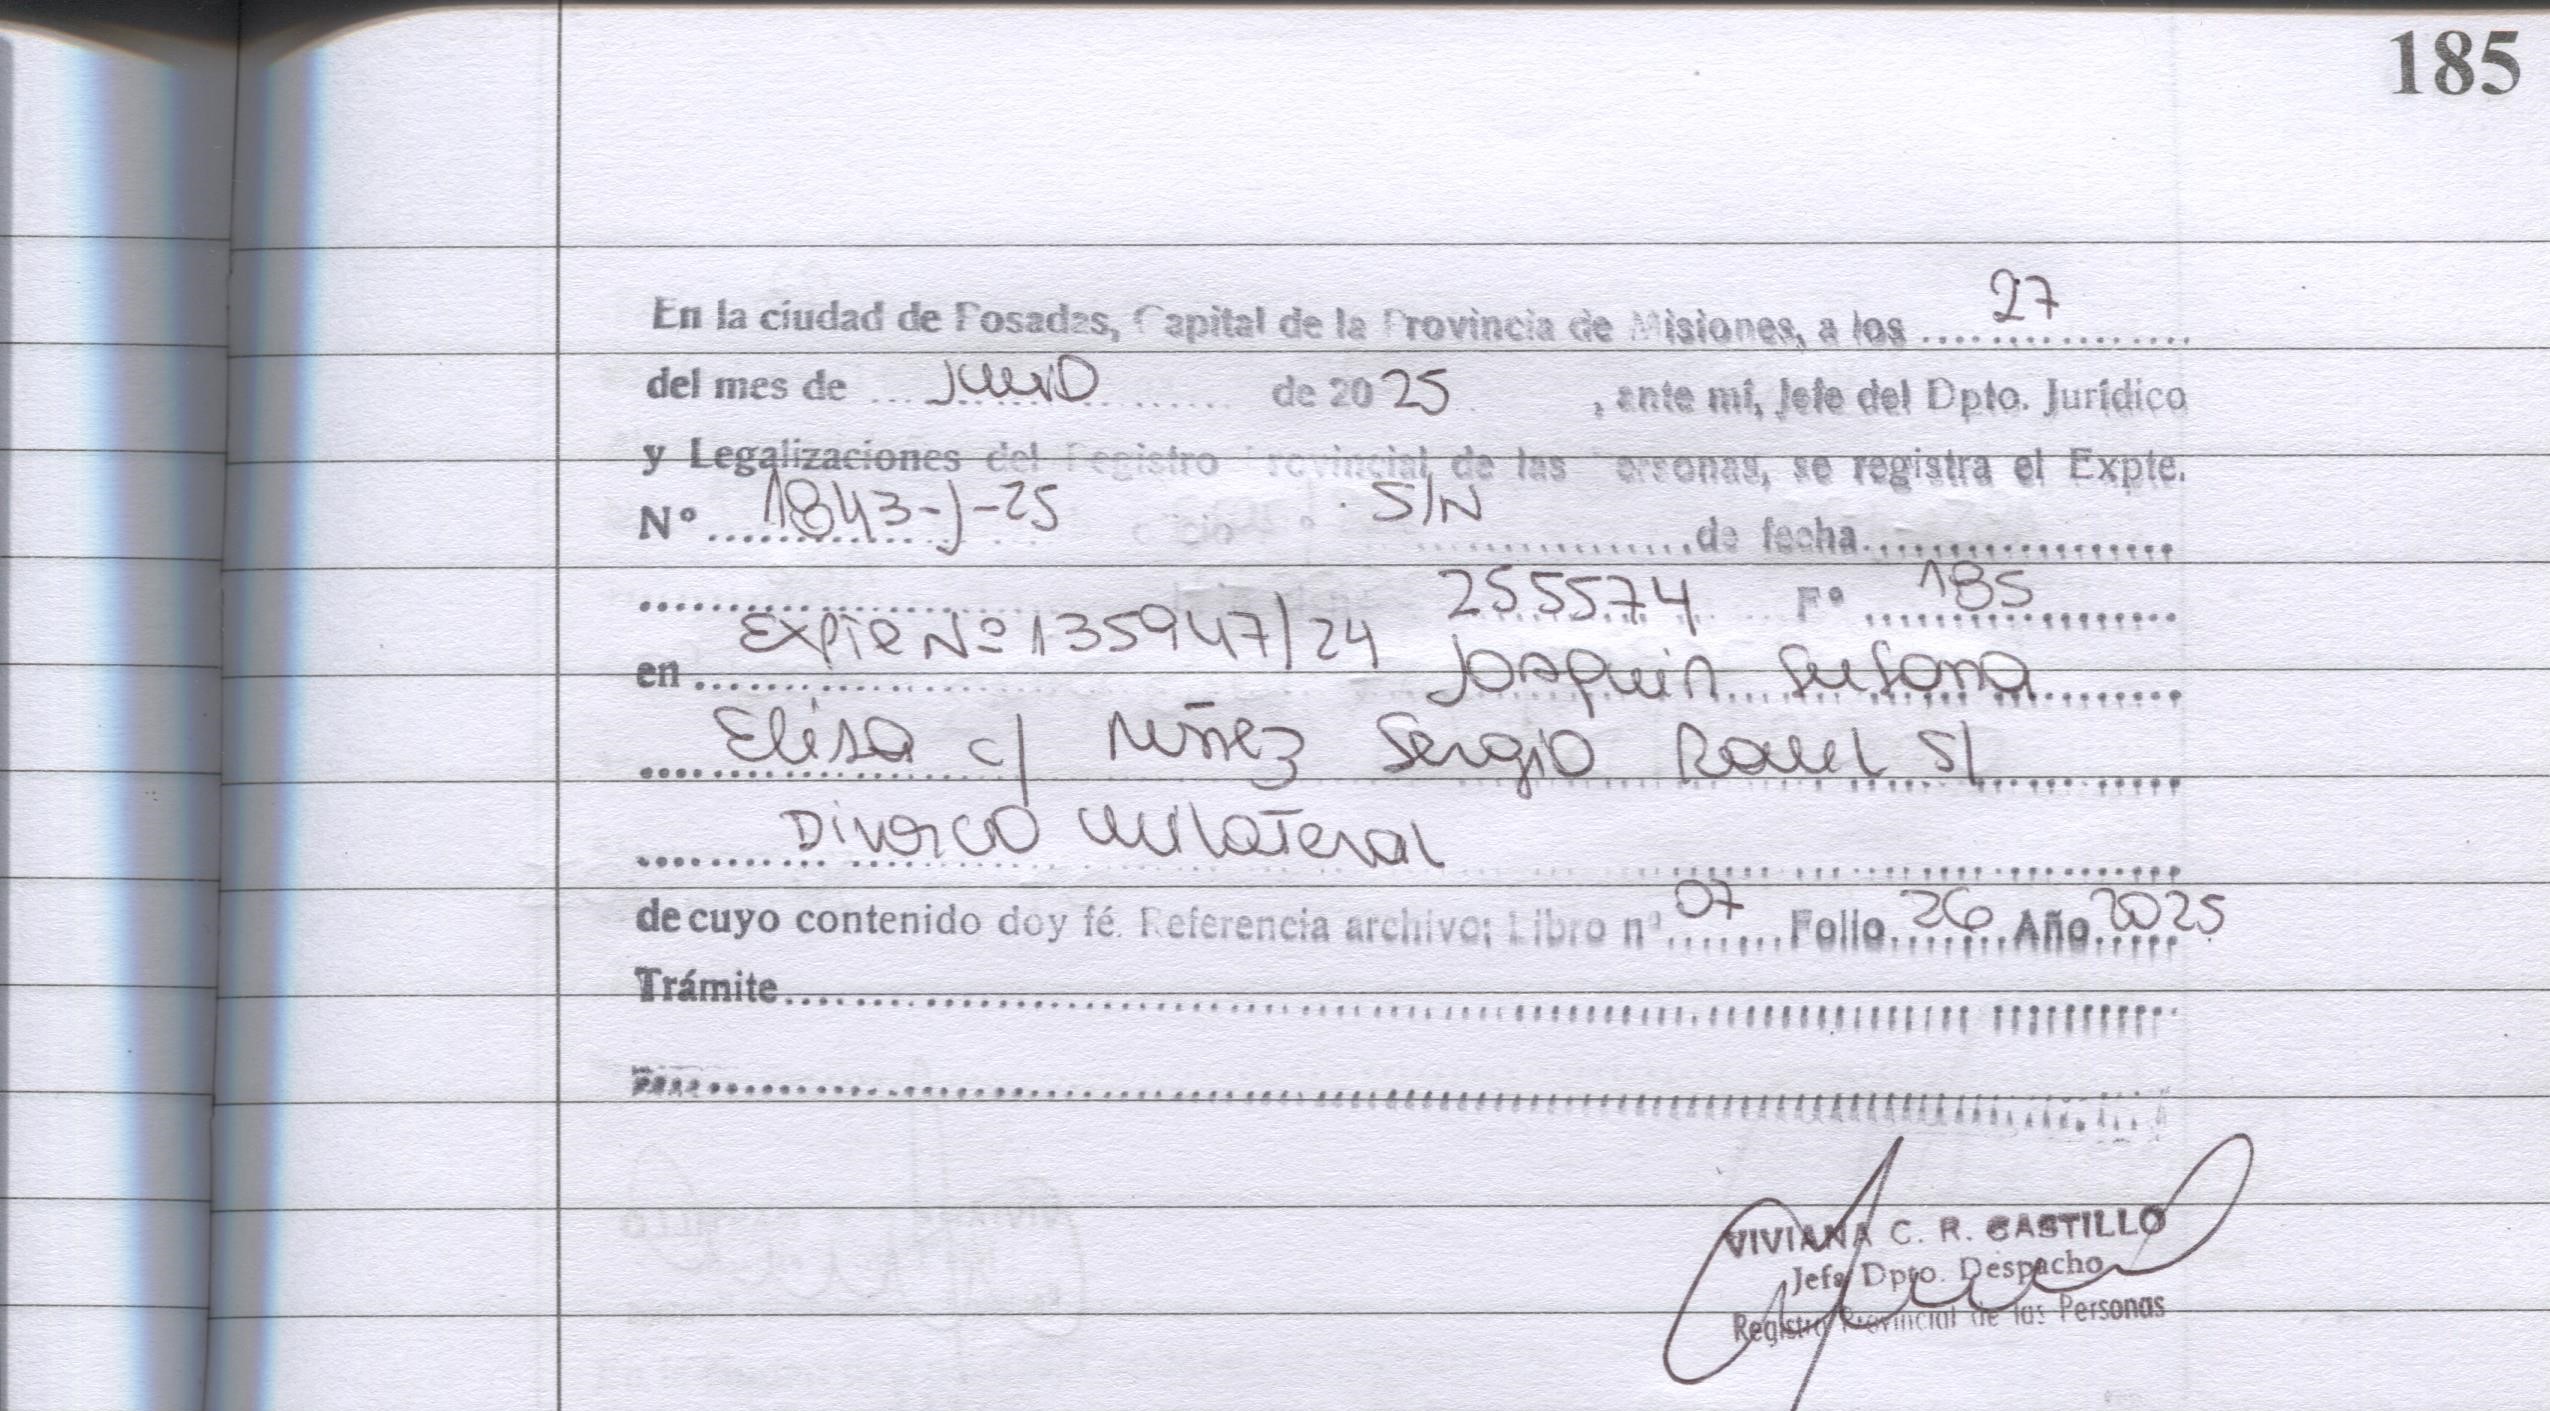 185
En la ciudad de Posadas, Capital de la Provincia de Misiones, a los 27
del mes de Junio de 2025, ante mí, Jefe del Dpto. Jurídico
y Legalizaciones del Registro Provincial de las Personas, se registra el Expte.
Nº 1843-J-25 Oficio S/N de fecha
255574 Fº 185
en Expte Nº 135947/24 Joaquin Susana
Elisa c/ Núñez Sergio Raul S/
Divorcio Unilateral
de cuyo contenido doy fé. Referencia archivo: Libro nº 07 Folio 26 Año 2025
Trámite
VIVIANA C. R. CASTILLO
Jefa Dpto. Despacho
Registro Provincial de las Personas